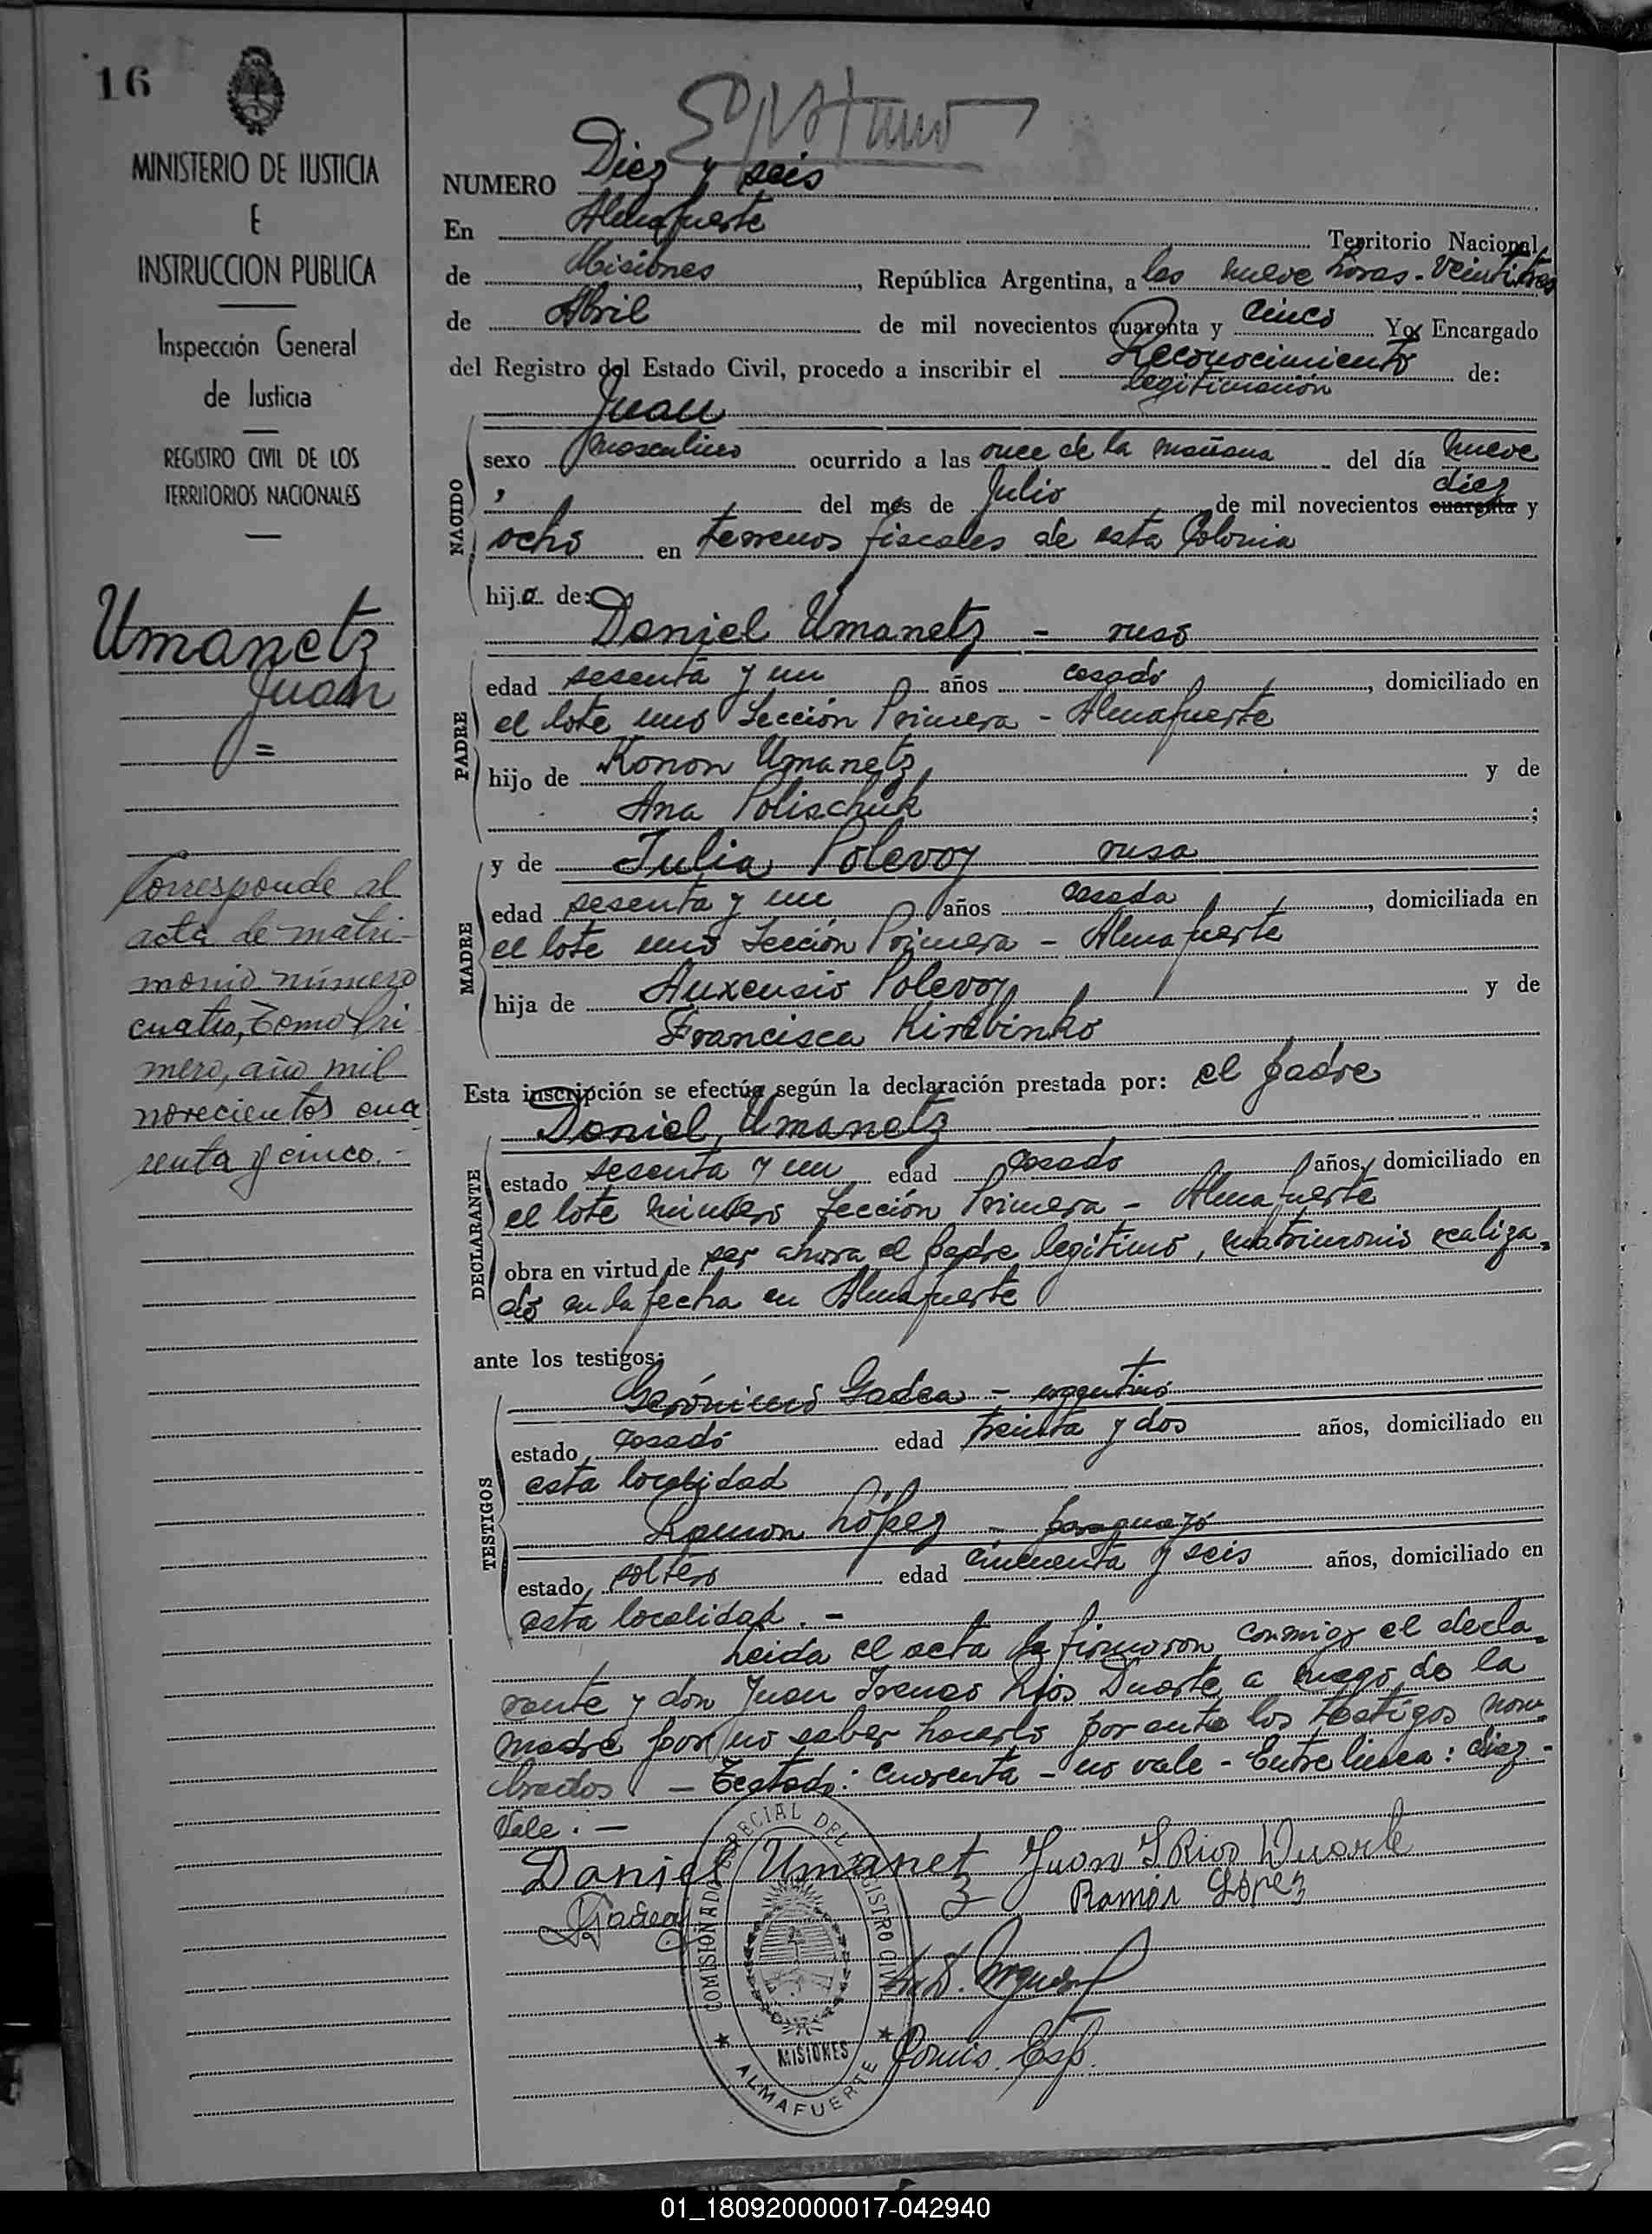 16
MINISTERIO DE JUSTICIA
E
INSTRUCCION PUBLICA
Inspección General
de Justicia
REGISTRO CIVIL DE LOS
TERRITORIOS NACIONALES
Umanetz
Juan
=
Corresponde al
acta de matri-
monio número
cuatro, Tomo Pri
mero, año mil
novecientos cua
renta y cinco.-
NUMERO Diez y seis
En Almafuerte Territorio Nacional
de Misiones, República Argentina, a las nueve horas - Veintitres
de Abril de mil novecientos cuarenta y cinco Yo, Encargado
del Registro del Estado Civil, procedo a inscribir el Reconocimiento de:
legitimación
Juan
NACIDO
sexo masculino ocurrido a las once de la mañana del día nueve
diez
, del mes de Julio de mil novecientos cuarenta y
ocho en terrenos fiscales de esta Colonia
hijo de:
Daniel Umanetz - ruso
PADRE
edad sesenta y un años casado, domiciliado en
el lote uno Sección Primera - Almafuerte
hijo de Konon Umanetz y de
Ana Polischuk ;
y de Julia Polevoy rusa
MADRE
edad sesenta y un años casada, domiciliada en
el lote uno Sección Primera - Almafuerte
hija de Auxensio Polevoy y de
Francisca
Esta inscripción se efectúa según la declaración prestada por: el padre
Daniel Umanetz
DECLARANTE
estado sesenta y un edad casado años, domiciliado en
el lote número Sección Primera - Almafuerte
obra en virtud de ser ahora el padre legítimo, matrimonio realiza-
do en la fecha en Almafuerte
ante los testigos:
Gerónimo Gadea - argentino
TESTIGOS
estado casado edad treinta y dos años, domiciliado en
esta localidad
Ramon López - paraguayo
estado soltero edad cincuenta y seis años, domiciliado en
esta localidad. -
Leida el acta la firmaron conmigo el decla-
rante y don Juan Ireneo Rios Duarte a ruego de la
madre por no saber hacerlo por ante los testigos nom-
brados - Testado: cuarenta - no vale - Entre linea: diez -
Vale. -
Daniel Umanetz Juan I Rios Duarte
Gadea Ramón López
Comis. Esp.
COMISIONADO ESPECIAL DEL REGISTRO CIVIL
MISIONES
★ ALMAFUERTE ★
01_180920000017-042940